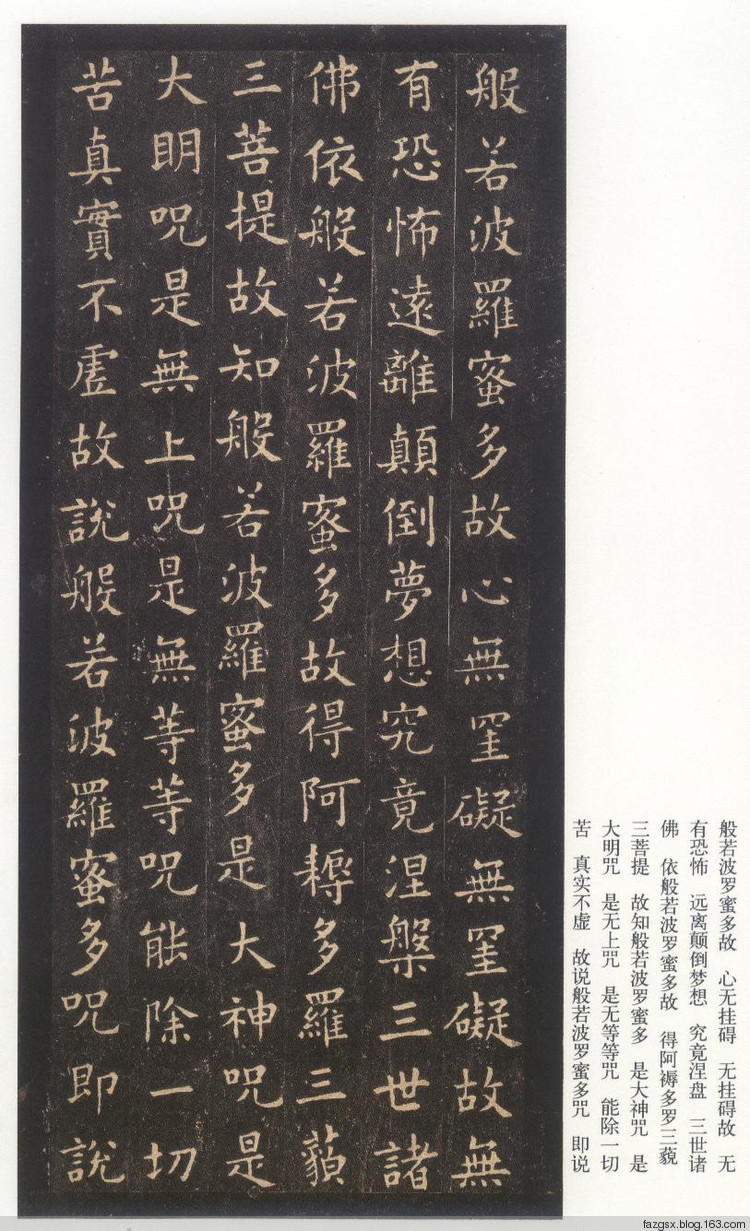 般若波羅蜜多故心無罣礙無罣礙故無
有恐怖遠離顛倒夢想究竟涅槃三世諸
佛依般若波羅蜜多故得阿耨多羅三藐
三菩提故知般若波羅蜜多是大神呪是
大明呪是無上呪是無等等呪能除一切
苦真實不虛故說般若波羅蜜多呪即說
般若波罗蜜多故 心无挂碍 无挂碍故 无
有恐怖 远离颠倒梦想 究竟涅盘 三世诸
佛 依般若波罗蜜多故 得阿褥多罗三藐
三菩提 故知般若波罗蜜多 是大神咒 是
大明咒 是无上咒 是无等等咒 能除一切
苦 真实不虚 故说般若波罗蜜多咒 即说
fazgsx.blog.163.com